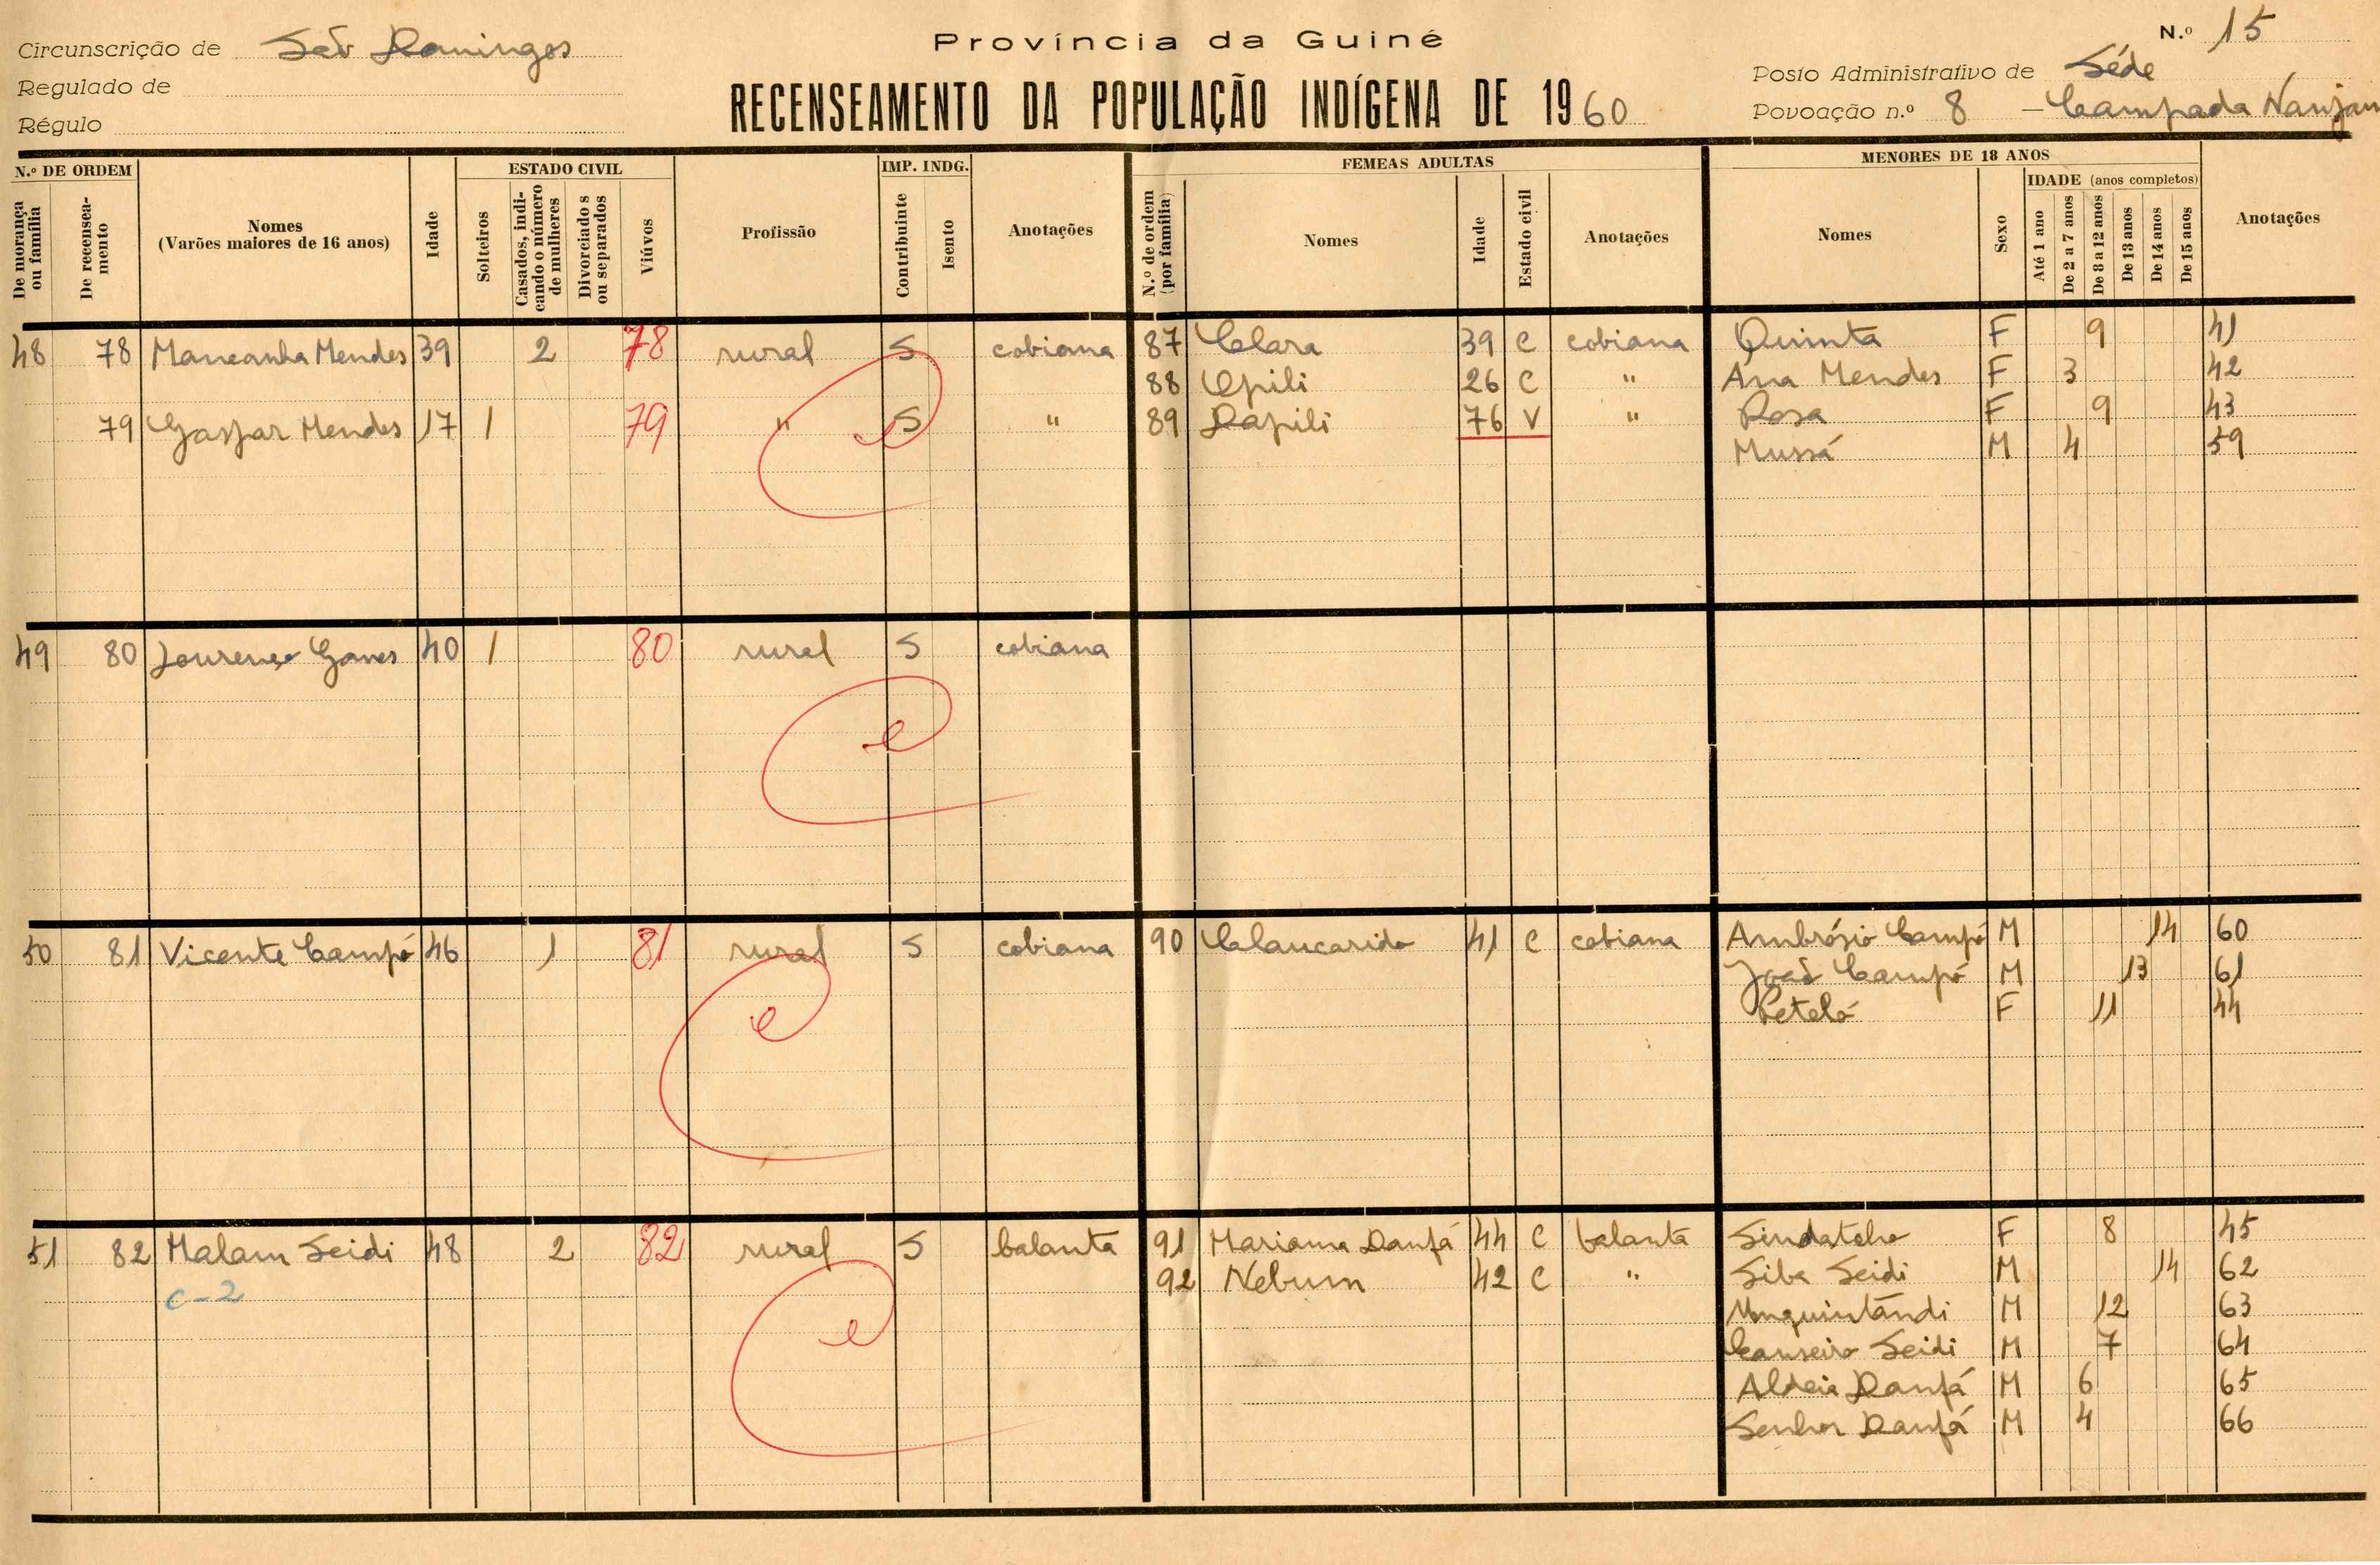 Província da Guiné
N.º 15
Circunscrição de São Domingos
Regulado de
Régulo
RECENSEAMENTO DA POPULAÇÃO INDÍGENA DE 1960
Posto Administrativo de Séde
Povoação n.º 8 — Campada Nanjan
N.º DE ORDEM
De morança ou família
De recensea-mento
Nomes
(Varões maiores de 16 anos)
Idade
ESTADO CIVIL
Solteiros
Casados, indi-cando o número de mulheres
Divorciados ou separados
Viúvos
Profissão
IMP. INDG.
Contribuinte
Isento
Anotações
FEMEAS ADULTAS
N.º de ordem (por família)
Nomes
Idade
Estado civil
Anotações
MENORES DE 18 ANOS
Nomes
Sexo
IDADE (anos completos)
Até 1 ano
De 2 a 7 anos
De 8 a 12 anos
De 13 anos
De 14 anos
De 15 anos
Anotações
48 78 Mancanha Mendes 39 2 78 rural S cobiana 87 Clara 39 C cobiana Quinta F 9 41
88 Opili 26 C " Ana Mendes F 3 42
79 Gaspar Mendes 17 1 79 " S " 89 Dapili 76 V " Rosa F 9 43
Mussá M 4 59
49 80 Lourenço Gomes 40 1 80 rural S cobiana
50 81 Vicente Campó 46 1 81 rural S cobiana 90 Clancarido 41 C cobiana Ambrósio Campó M 14 60
João Campó M 13 61
Petelá F 11 44
51 82 Malam Seidi 48 2 82 rural S balanta 91 Mariama Danfá 44 C balanta Sindateho F 8 45
C-2 92 Nebum 42 C " Siba Seidi M 14 62
Unquintandi M 12 63
Canseiro Seidi M 7 64
Aldeia Danfá M 6 65
Senhor Danfá M 4 66